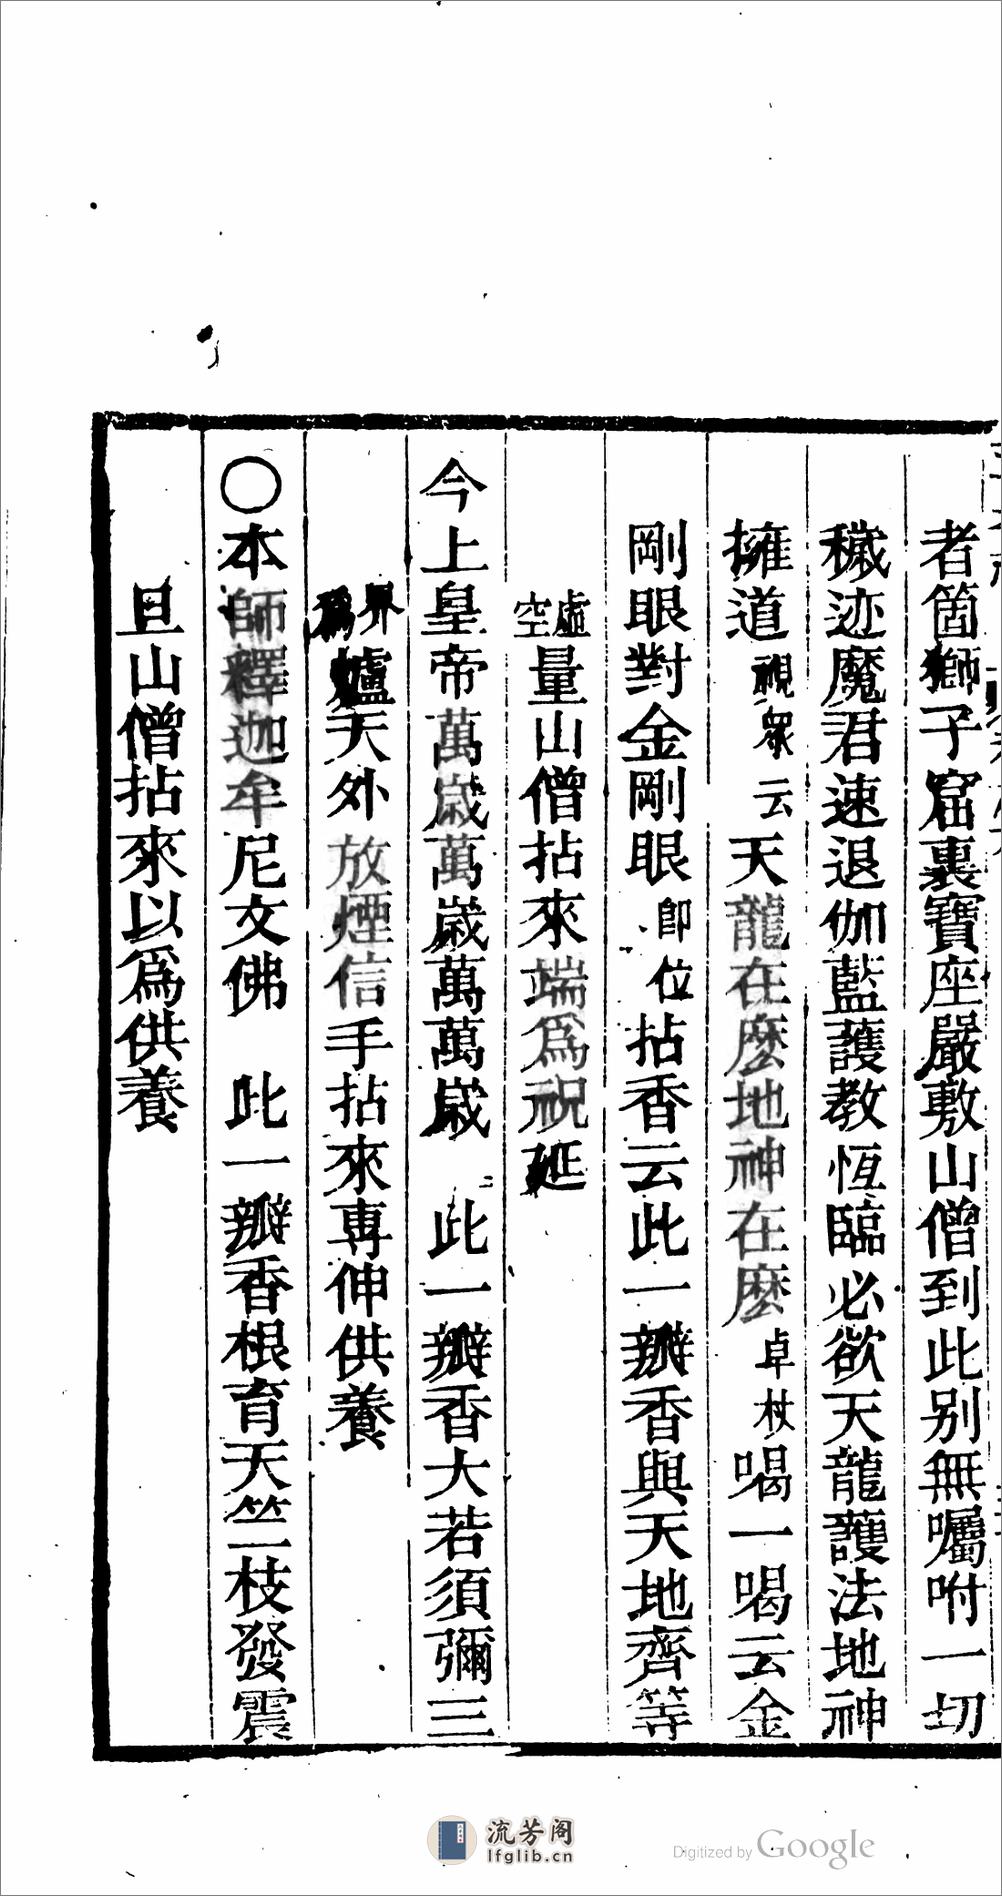 者箇獅子窟裏寶座嚴敷山僧到此别無囑咐一切
穢迹魔君速退伽藍護教恆臨必欲天龍護法地神
擁道視眾云天龍在麽地神在麽卓杖喝一喝云金
剛眼對金剛眼卽位拈香云此一瓣香與天地齊等
虛空量山僧拈來端爲祝延
今上皇帝萬歲萬歲萬萬歲 此一瓣香大若須彌三
界爲爐天外放煙信手拈來專伸供養
〇本師釋迦牟尼文佛 此一瓣香根育天竺枝發震
旦山僧拈來以爲供養
流芳阁
lfglib.cn
Digitized by Google